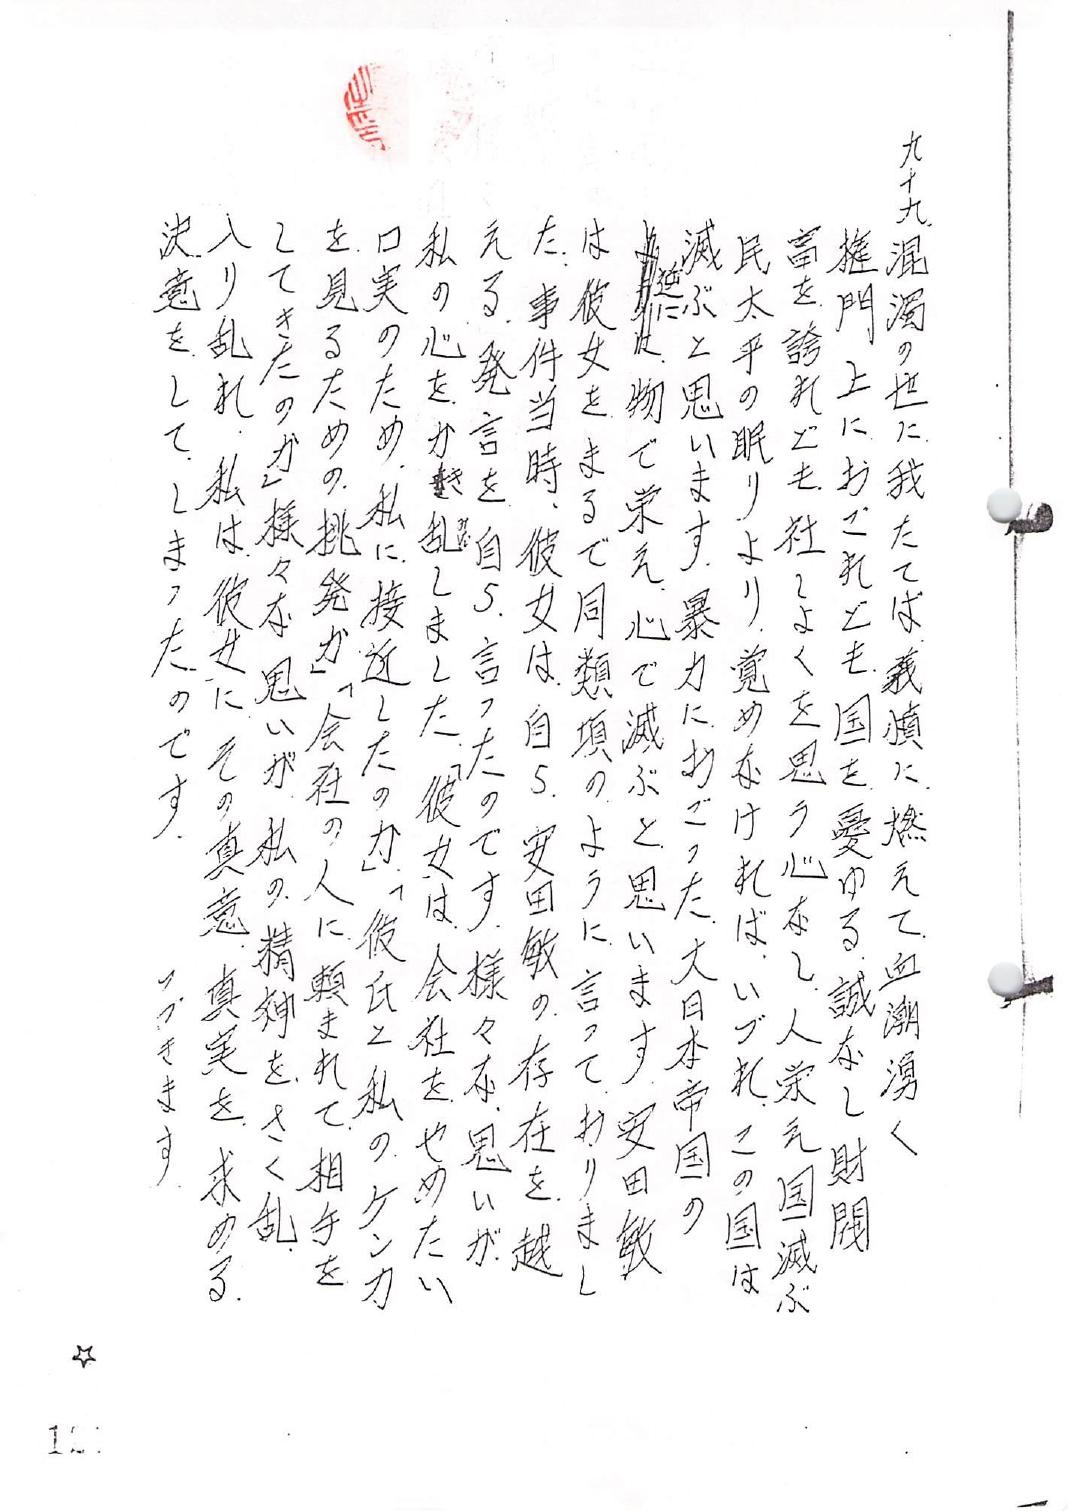 九十九.混濁の世に.我たてば.義憤に.燃えて.血潮湧く
権門 上におごれども.国を.憂ゆる.誠なし 財閥
富を.誇れども.社しょくを思う心なし.人栄え国滅ぶ
民太平の眠りより.覚めなければ.いづれ.この国は
滅ぶと思います.暴力におごった.大日本帝国の
逆に.物で栄え.心で滅ぶと思います.安田敏
は彼女を.まるで同類項のように.言って.おりまし
た.事件当時、彼女は.自ら.安田敏の.存在を.越
える.発言を.自ら.言ったのです.様々な.思いが.
私の心を.かき乱しました.「彼女は.会社を.やめたい
口実のため.私に.接近したのか」.「彼氏と私の.ケンカ
を.見るための.挑発か」「会社の人に.頼まれて.相手を
してきたのか」様々な思いが.私の.精神を.さく乱.
入り乱れ.私は.彼女に.その真意.真実を.求める.
決意を.して.しまったのです. つづきます.
☆